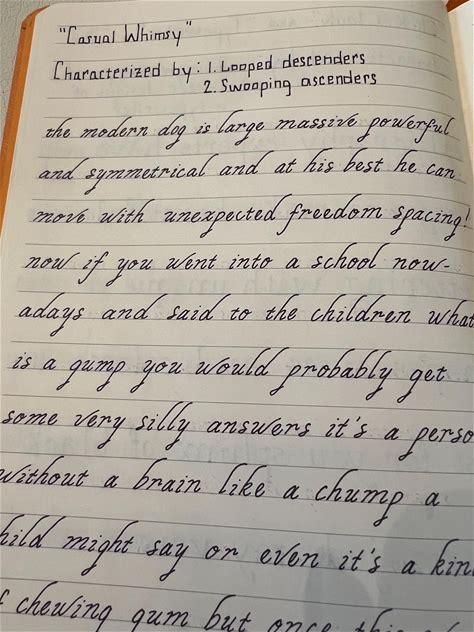 "Casual Whimsy"
Characterized by: 1. Looped descenders
2. Swooping ascenders
the modern dog is large massive powerful
and symmetrical and at his best he can
move with unexpected freedom spacing!
now if you went into a school now-
adays and said to the children what
is a gump you would probably get
some very silly answers it's a perso
without a brain like a chump a
hild might say or even it's a kin
f chewing gum but once